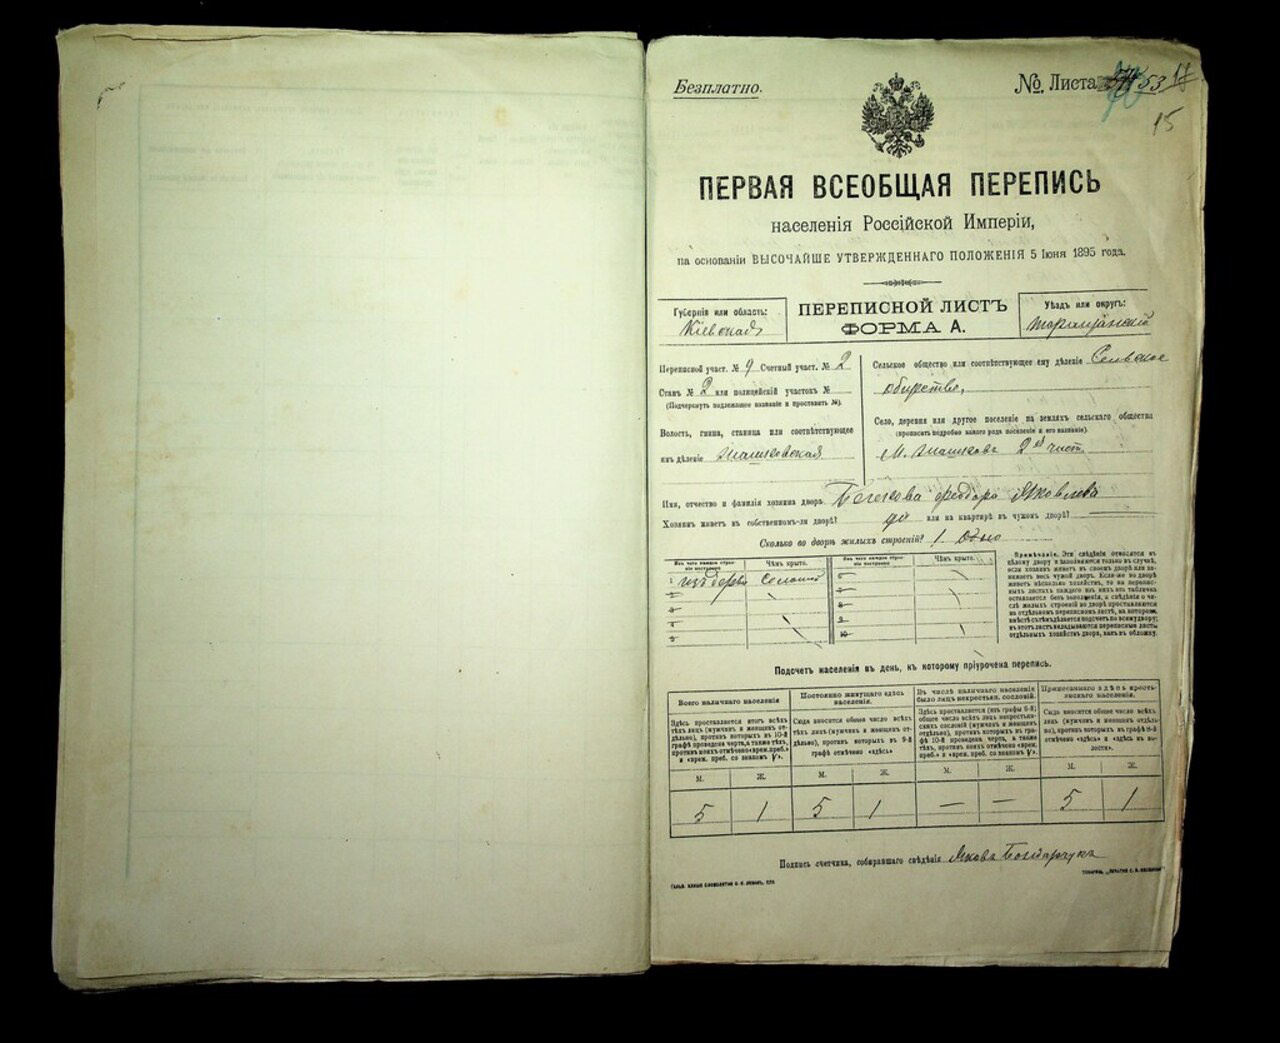 Безплатно.
№ Листа 53 17
15
ПЕРВАЯ ВСЕОБЩАЯ ПЕРЕПИСЬ
населенія Россійской Имперіи,
на основаніи ВЫСОЧАЙШЕ УТВЕРЖДЕННАГО ПОЛОЖЕНІЯ 5 Іюня 1895 года.
Губернія или область:
Кіевская
ПЕРЕПИСНОЙ ЛИСТЪ
ФОРМА А.
Уѣздъ или округъ:
Таращанскій
Переписной участ. № 9 Счетный участ. № 2
Станъ № 2 или полицейскій участокъ №
(Подчеркнуть надлежащее названіе и проставить №).
Волость, гмина, станица или соотвѣтствующее
имъ дѣленіе
Сельское общество или соотвѣтствующее ему дѣленіе Сельское
Село, деревня или другое поселеніе на земляхъ сельскаго общества
(прописать подробно какого рода поселеніе и его названіе).
М. 2ой
Имя, отчество и фамилія хозяина двора Яковлева
Хозяинъ живетъ въ собственномъ-ли дворѣ? да или на квартирѣ въ чужомъ дворѣ?
Сколько во дворѣ жилыхъ строеній? 1. Одно
Изъ чего каждое строеніе построено
Чѣмъ крыто.
Изъ чего каждое строеніе построено
Чѣмъ крыто.
1 изъ дерева Соломой
2
3
4
5
Примѣчаніе. Эти свѣдѣнія относятся къ
цѣлому двору и заполняются только въ случаѣ,
если хозяинъ живетъ въ своемъ дворѣ или занимаетъ
весь чужой дворъ. Если-же во дворѣ
живетъ нѣсколько хозяйствъ, то на переписныхъ
листахъ каждаго изъ нихъ эта табличка
оставляется безъ заполненія, а свѣдѣнія о числѣ
жилыхъ строеній во дворѣ проставляются
на отдѣльномъ переписномъ листѣ, на которомъ
вмѣстѣ съ тѣмъ дѣлается подсчетъ по всему двору;
въ этотъ листъ вкладываются переписные листы
отдѣльныхъ хозяйствъ двора, какъ въ обложку.
Подсчетъ населенія въ день, къ которому пріурочена перепись.
Всего наличнаго населенія
Постоянно живущаго здѣсь населенія.
Въ числѣ наличнаго населенія было лицъ некрестьян. сословій.
Приписаннаго здѣсь крестьянскаго населенія.
Здѣсь проставляется итогъ всѣхъ лицъ (мужчинъ и женщинъ отдѣльно), противъ которыхъ въ 10-й графѣ проведена черта, а также тѣхъ, противъ коихъ отмѣчено «врем. преб.» и «врем. преб. со знакомъ V».
Сюда вносится общее число всѣхъ лицъ (мужчинъ и женщинъ отдѣльно), противъ которыхъ въ 9-й графѣ отмѣчено «здѣсь»
Здѣсь проставляется (изъ графы 6-й) общее число всѣхъ лицъ некрестьянскихъ сословій (мужчинъ и женщинъ отдѣльно), противъ которыхъ въ графѣ 10-й проведена черта, а также тѣхъ, противъ коихъ отмѣчено «врем. преб.» и «врем. преб. со знакомъ V».
Сюда вносится общее число всѣхъ лицъ (мужчинъ и женщинъ отдѣльно), противъ которыхъ въ графѣ 8-й отмѣчено «здѣсь» и «здѣсь въ волости».
М. Ж. М. Ж. М. Ж. М. Ж.
5 1 5 1 — — 5 1
Подпись счетчика, собиравшаго свѣдѣнія Якова Бондарчукъ